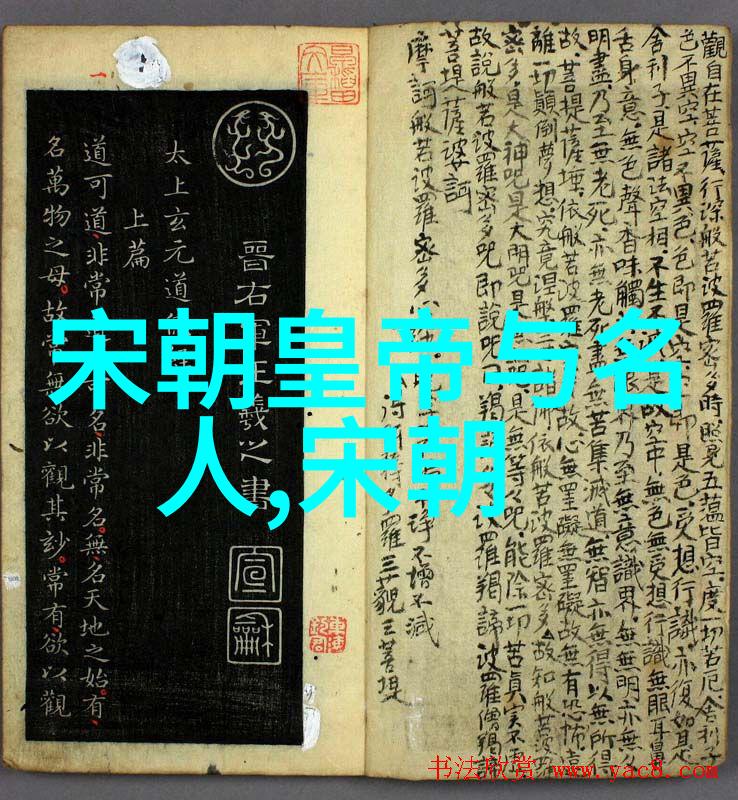 宋朝皇帝与名
人,宋朝
觀自在菩薩行深般若波羅蜜多時照見五蘊皆空度一切苦厄舍利子
色不異空空不異色色即是空即是色受想行識亦復如是
舍利子是諸法空相不生不是故空中無色無受想行識無眼耳鼻
舌身意無色聲香味觸無眼界乃至無意識界無無明亦無
明盡乃至無老死亦無老死盡無苦集滅道無智亦無得以無所得
故菩提薩埵依般若波羅故心無罣礙無罣礙故無有恐怖遠
離一切顛倒夢想究竟涅槃三諸佛依般若波羅密多故知般若波羅
密多是大神咒是大明咒是是無等々咒能除一切苦真實不虛
故說般若波羅密多咒即說咒曰羯波羅羯諦波羅僧羯諦
菩提薩婆訶
摩訶般若波羅密多心
淨不增不減
得羅三藐三菩提
晉右軍王羲之書
太上玄元道
上篇
道可道非常名非常名無名天地之始有
名萬物之母故常無欲以觀其妙常有欲以觀
宣
龢
书法欣赏 www.yac8.com